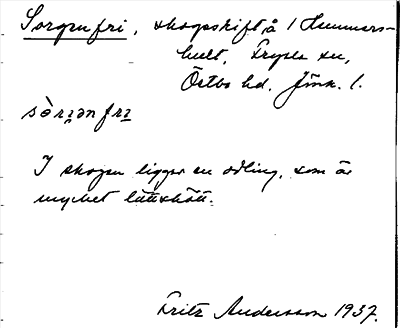 Sorgenfri, skogsskifte å 1 Hummers-
hult, Tryels sn,
Östbo hd. Jönk. l.
sòrʒən frɪ
I skogen ligger en odling, som är
mycket lättskött.
Fritz Andersson 1937.